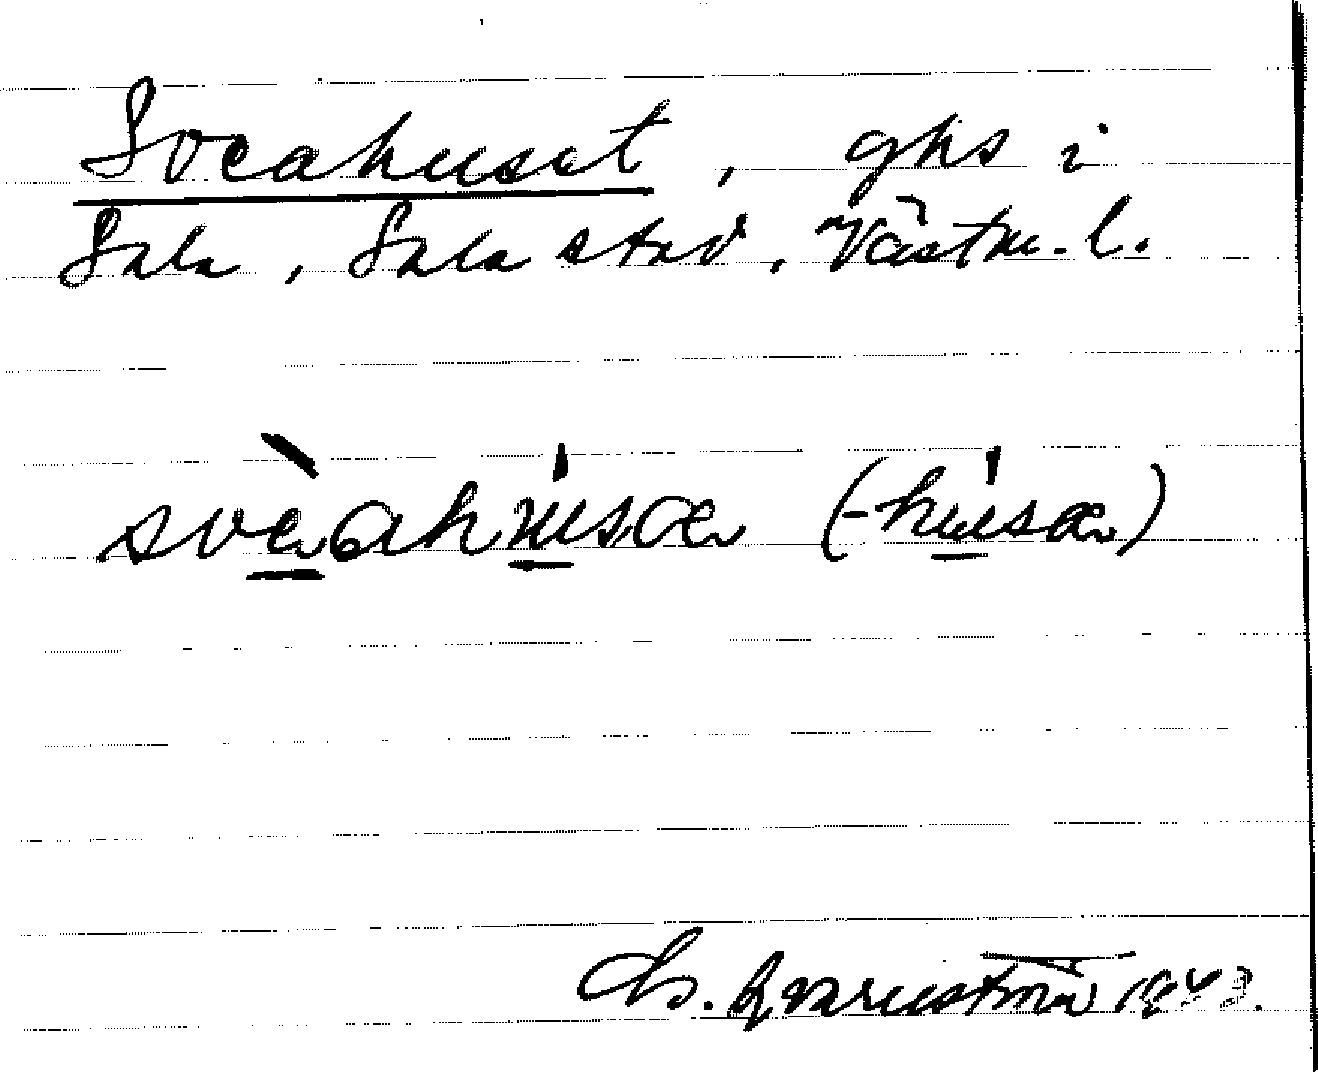 Sveahuset, ghs i
Sala, Sala stad, Västm. l.
svèahúsæ (-húsæ)
Qvarnström 1943.